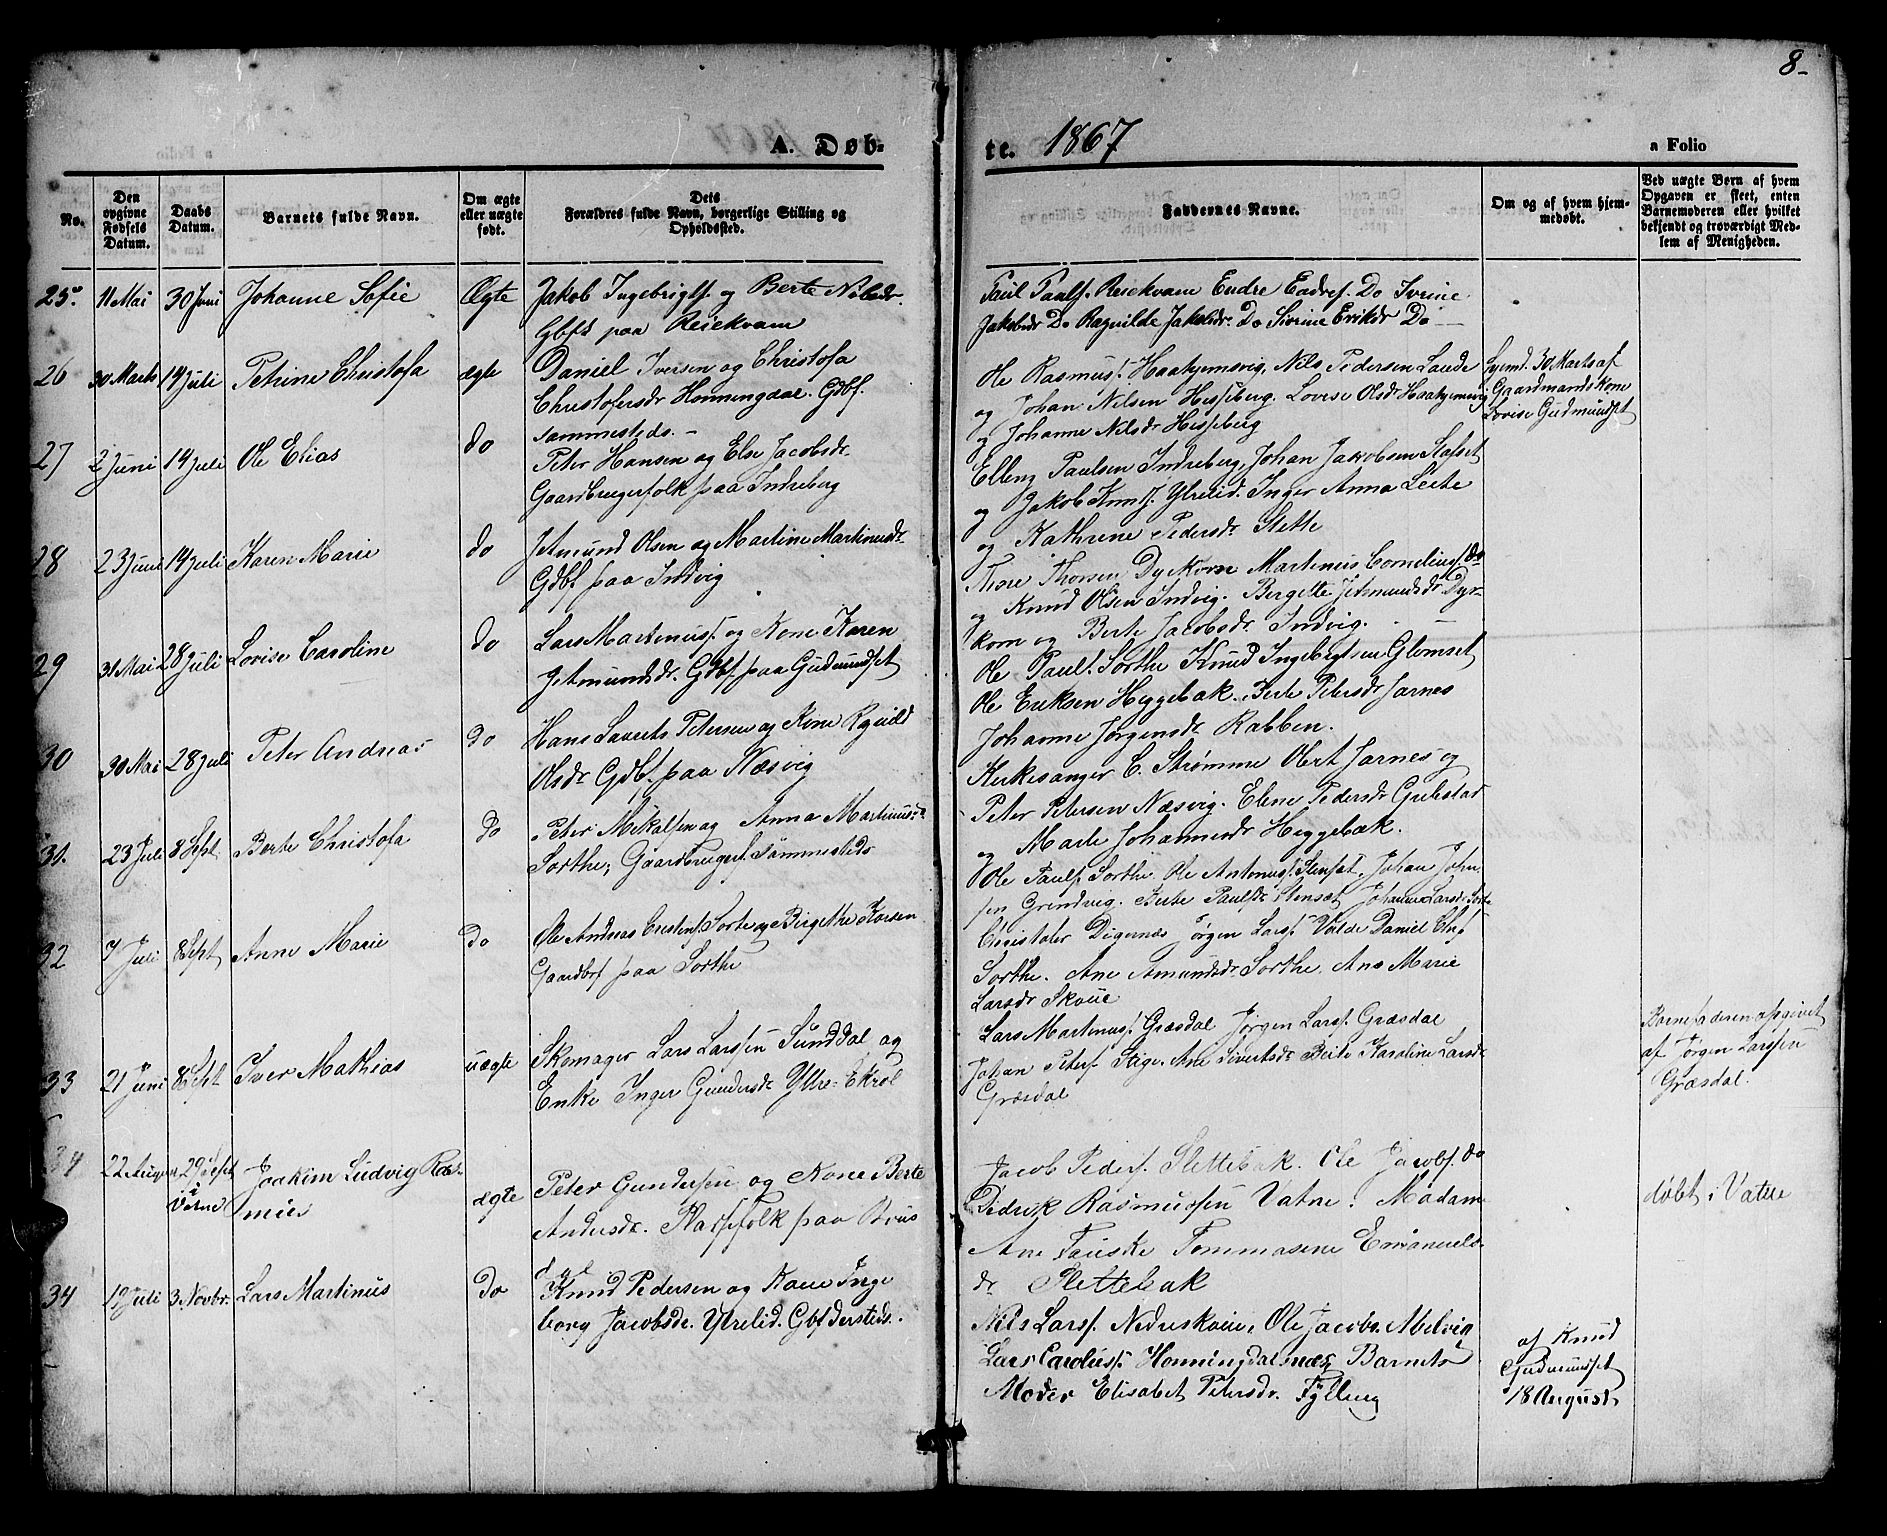 8-
A. Døb=
te. 1867
a Folio
No.
Den opgivne Fødsels Datum.
Daabs Datum.
Barnets fulde Navn.
Om ægte eller uægte født.
Dets Forældres fulde Navn, borgerlige Stilling og Opholdssted.
Faddernes Navne.
Om og af hvem hjemmedøbt.
Ved uægte Børn af hvem Opgaven er skeet, enten Barnemoderen eller hvilket bekjendt og troværdigt Medlem af Menigheden.
25. 11 Mai 30 Juni Johanne Sofie Ægte Jakob Ingebrigts. og Berte Nilsdr.
Gbfk paa Reiekvam
Paul Pauls. Reiekvam Endre Endres. Do Ivrine
Jakobsdr Do Ragnilde Jakobsdr. Do Sivrine Eriksdr Do
26 30 Marts 14 Juli Petrine Christofa ægte Daniel Iversen og Christofa
Christofersdr Honningdal. Gdbf.
sammesteds. –
Ole Rasmuss. Haahjemsvig, Nils Pedersen Lande
og Johan Nilsen Hesseberg. Lovise Olsdr Haahjemsvig
og Johanne Nilsdr Hesseberg
hjemd. 30 Marts af
Gaardmandskone
Lovise Gudmundset
27 2 Juni 14 Juli Ole Elias do
Peter Hansen og Else Jacobsdr.
Gaardbrugerfolk paa Indreberg
Elling Paulsen Indreberg, Johan Jakobsen Stafset
og Jakob Knuds. Ytrelid. Inger Anna Leite
og Kathrine Pedersdr Slette
28 23 Juni 14 Juli Karen Marie do Jetmund Olsen og Martine Martinusdr.
Gdbf paa Indvig
Thore Thorsen Dyrkorn Martinus Corneliuss. do
og Knud Olsen Indvig. Bergette Jetmundsdr Dyr-
korn og Berte Jacobsdr Indvig. –
29 31 Mai 28 Juli Lovise Caroline do Lars Martinuss. og Kone Karen
Jetmundsdr. Gdbf. paa Gudmundset
Ole Pauls. Sorthe Knud Ingebrigtsen Glomset
Ole Eriksen Heggebak. Berte Petersdr Jarnes
Johanne Jørgensdr Rabben.
30 30 Mai 28 Juli Peter Andreas do Hans Laurits Petersen og Kone Rgnild
Olsdr Gdbf. paa Næsvig
Kirkesanger C. Strømme Olert Jarnes og
Peter Petersen Næsvig. Elene Pedersdr Gulestad
og Marte Johannesdr Heggebæk.
31. 23 Juli 8 Sept. Berte Christofa Do Peter Mikalsen og Anna Martinusdr
Sorthe, Gaardbrugerf. sammesteds
Ole Pauls. Sorthe. Ole Antonius. Stenset. Johan John-
sen Grindvig. Berte Paulsdr Stenset Johanne Larsdr. Sorte
32 7 Juli 8 Sept Anne Marie Do Ole Andreas Sorte og Birgethe Karsen
Gaardbrf paa Sorthe
Christofer Digernæs Jørgen Lars. Valde Daniel
Sorthe. Ane Amundsdr Sorthe. Ane Marie
Larsdr Skoue
33 21 Juni 8 Sept Iver Mathias uægte Skomager Lars Larssen Sunddal og
Enke Inger Gundersdr Ytre-Ekrol
Lars Martinuss. Græsdal Jørgen Larss. Græsdal
Johan Peters. Stige. Ane Sivertsdr Berte Karoline Larsdr
Græsdal
Barnefaderen opgivet
af Jørgen Larssen
Græsdal.
34 22 August 29 Sept i Vatne Joakim Ludvig Ras-
mus ægte Peter Gundersen og Kone Berte
Andersdr. Plassfolk paa Brus
dal
Jacob Peders. Slettebak. Ole Jacobs. do
Pedrik Rasmussen Vatne. Madam
Ane Fauske Tommasene Emanuels-
dr Slettebak
døbt i Vatne
34 19 Juli 3 Novbr. Lars Martinus Do Knud Pedersen og Kone Inge
borg Jacobsdr. Ytrelid. Gbf dersteds.
Nils Larss. Nedreskoue, Ole Jacobs. Melvig
Lars Caroluss. Honningdalsnæs Barnets
Moder Elisabet Petersdr. Fylling
af Knud
Gudmundset
18 August.